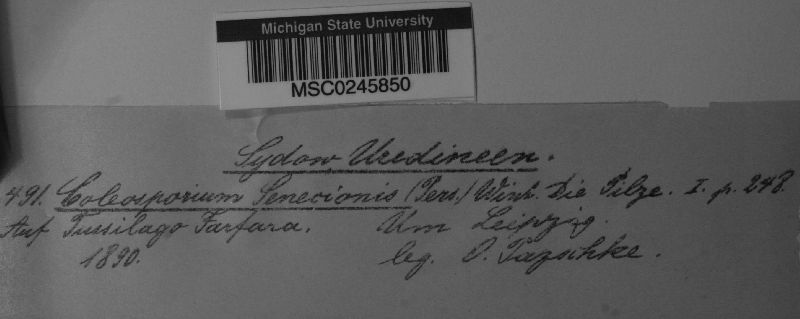 Michigan State University
MSC0245850
Sydow, Uredineen.
491. Coleosporium Senecionis (Pers.) Wint. Die Pilze. I. p. 248.
Auf Tussilago Farfara. Um Leipzig.
1890. leg. O. Pazschke.